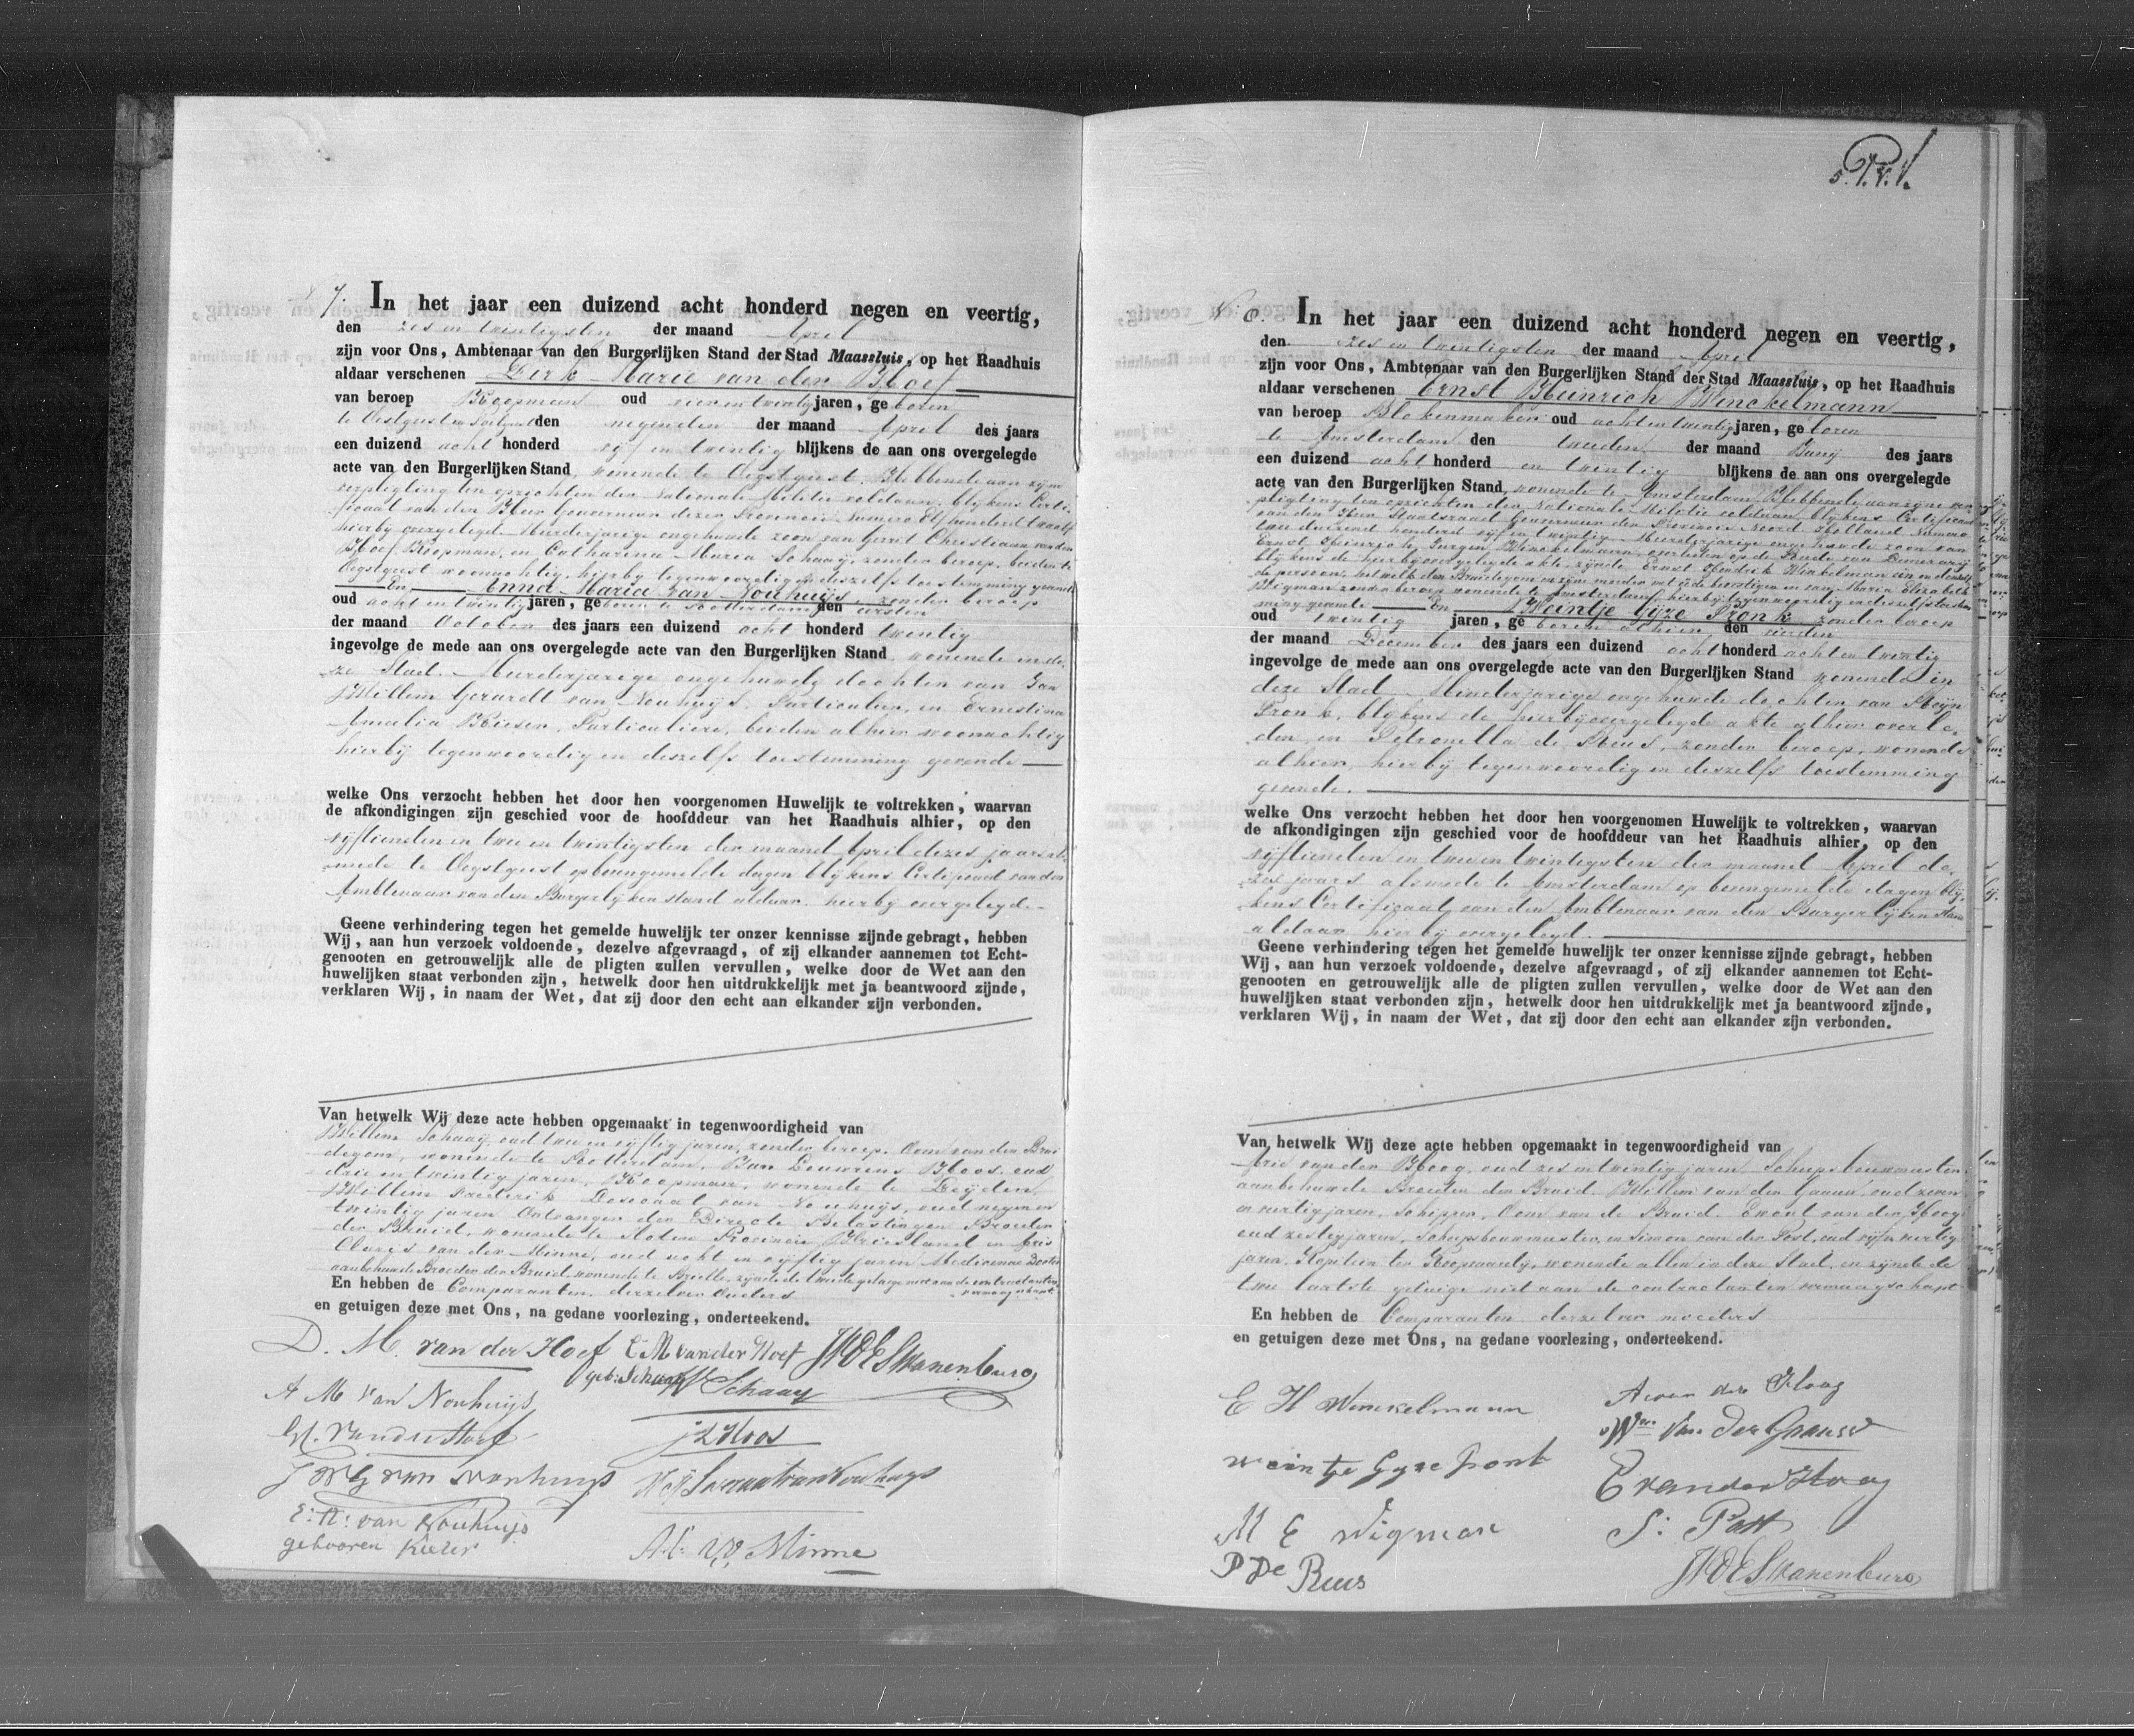 7. In het jaar een duizend acht honderd negen en veertig,
den zes en twintigsten der maand April
zijn voor Ons, Ambtenaar van den Burgerlijken Stand der Stad Maassluis, op het Raadhuis
aldaar verschenen Dirk Marie van der Hoef
van beroep Koopman oud vier en twintig jaren, geboren
te Oestgeest den negenden der maand April des jaars
een duizend acht honderd vijf en twintig blijkens de aan ons overgelegde
acte van den Burgerlijken Stand, wonende te Oegstgeest. Hebbende aan zijne
verpligting ten opzichten der Nationale Militie voldaan, blijkens Certi-
ficaat van den Heer Gouverneur dezer Provincie Numero Elf honderd twaalf
hierbij overgelegd. Meerderjarige ongehuwde zoon van Gerrit Christiaan van der
Hoef, Koopman, en Catharina Maria Schaaij, zonder beroep, beiden te
Oegstgeest woonachtig, hierbij tegenwoordig en deszelfs toestemming gevende
En Anna Maria van Nouhuijs, zonder beroep
oud acht en twintig jaren, geboren te Rotterdam den eersten
der maand October des jaars een duizend acht honderd twintig
ingevolge de mede aan ons overgelegde acte van den Burgerlijken Stand, wonende in de-
ze Stad. Meerderjarige ongehuwde dochter van Jan
Willem Gerardt van Nouhuijs, Particulier, en Ernestina
Amalia Kieser, Particuliere, beiden alhier woonachtig
hierbij tegenwoordig en deszelfs toestemming gevende
welke Ons verzocht hebben het door hen voorgenomen Huwelijk te voltrekken, waarvan
de afkondigingen zijn geschied voor de hoofddeur van het Raadhuis alhier, op den
vijftienden en twee en twintigsten der maand April dezes jaars als
mede te Oegstgeest op bovengemelde dagen blijkens Certificaat van den
Ambtenaar van den Burgerlijken stand aldaar hierbij overgelegd.
Geene verhindering tegen het gemelde huwelijk ter onzer kennisse zijnde gebragt, hebben
Wij, aan hun verzoek voldoende, dezelve afgevraagd, of zij elkander aannemen tot Echt-
genooten en getrouwelijk alle de pligten zullen vervullen, welke door de Wet aan den
huwelijken staat verbonden zijn, hetwelk door hen uitdrukkelijk met ja beantwoord zijnde,
verklaren Wij, in naam der Wet, dat zij door den echt aan elkander zijn verbonden.
Van hetwelk Wij deze acte hebben opgemaakt in tegenwoordigheid van
Willem Schaaij, oud twee en vijftig jaren, zonder beroep, Oom van den Brui
degom, wonende te Rotterdam, Jan Louwrens Hoos, oud
drie en twintig jaren, Koopman, wonende te Leijden,
Willem Frederik van Nouhuijs, oud negen en
twintig jaren Ontvanger der Directe Belastingen Broeder
der Bruid, wonende te Sloten Provincie Vriesland en Aris
van der Minne, oud acht en vijftig jaren Medicinae Doctor
aanbehuwde Broeder der Bruid, wonende te Brielle, zijnde de tweede getuige niet aan de contractanten
vermaagschapt
En hebben de Comparanten, derzelver Ouders
en getuigen deze met Ons, na gedane voorlezing, onderteekend.
D. M. van der Hoef C M van der Hoef
geb: Schaaij
W Schaaij
A M van Nouhuijs
J L Hoos
J W G van Nouhuijs
E: A: van Nouhuijs
gebooren Kieser
Minne
N. 8. In het jaar een duizend acht honderd negen en veertig,
den zes en twintigsten der maand April
zijn voor Ons, Ambtenaar van den Burgerlijken Stand der Stad Maassluis, op het Raadhuis
aldaar verschenen Ernst Heinrich Winckelmann
van beroep Blokenmaker oud acht en twintig jaren, geboren
te Amsterdam den tweeden der maand Junij des jaars
een duizend acht honderd en twintig blijkens de aan ons overgelegde
acte van den Burgerlijken Stand, wonende te Amsterdam. Hebbende aan zijne ver-
pligting ten opzichten der Nationale Militie voldaan blijkens Certificaat
van den Heer Staatsraad Gouverneur der Provincie Noord Holland Numero
twee duizend honderd vijf en twintig. Meerderjarige ongehuwde zoon van
Ernst Heinrich Jurgen Winckelmann, overleden op de Reede van Demerary
blijkens de hierbij overgelegde akte, zijnde Ernst Hendrik Winkelman een en dezelfde
persoon, hetwelk den Bruidegom en zijne moeder met eede bevestigen en van Maria Elizabeth
Wigman zonder beroep wonende te Amsterdam, hierbij tegenwoordig en deszelfs toestem
ming gevende En Weintje Gijze Pronk zonder beroep
oud twintig jaren, geboren alhier den vierden
der maand December des jaars een duizend acht honderd acht en twintig
ingevolge de mede aan ons overgelegde acte van den Burgerlijken Stand wonende in
deze Stad. Minderjarige ongehuwde dochter van Stijn
Pronk, blijkens de hierbij overgelegde akte alhier overle-
den, en Petronella de Reus, zonder beroep, wonende
alhier, hierbij tegenwoordig en deszelfs toestemming
gevende.
welke Ons verzocht hebben het door hen voorgenomen Huwelijk te voltrekken, waarvan
de afkondigingen zijn geschied voor de hoofddeur van het Raadhuis alhier, op den
vijftienden en twee en twintigsten der maand April de-
zes jaars alsmede te Amsterdam op bovengemelde dagen blij-
kens Certificaat van den Ambtenaar van den Burgerlijken Stand
aldaar hierbij overgelegd.
Geene verhindering tegen het gemelde huwelijk ter onzer kennisse zijnde gebragt, hebben
Wij, aan hun verzoek voldoende, dezelve afgevraagd, of zij elkander aannemen tot Echt-
genooten en getrouwelijk alle de pligten zullen vervullen, welke door de Wet aan den
huwelijken staat verbonden zijn, hetwelk door hen uitdrukkelijk met ja beantwoord zijnde,
verklaren Wij, in naam der Wet, dat zij door den echt aan elkander zijn verbonden.
Van hetwelk Wij deze acte hebben opgemaakt in tegenwoordigheid van
Arie van der Hoog, oud zes en twintig jaren Scheepsbouwmeester
aanbehuwde Broeder der Bruid. Willem van der Graauw, oud zeven
en veertig jaren, Schipper, Oom van de Bruid. Ewout van der Hoog
oud zestig jaren, Scheepsbouwmeester, en Simon van der Post, oud vijf en veertig
jaren, Kapitein ter Koopvaardij, wonende allen in deze Stad, en zijnde de
twee laatste getuige niet aan de contractanten vermaagschapt
En hebben de Comparanten derzelver moeders
en getuigen deze met Ons, na gedane voorlezing, onderteekend.
E H Winckelmann
A van der Hoog
Wm van der Graauw
Weintje Gyze Pronk
E van der Hoog
M E Wigman
S: Post
P De Reus